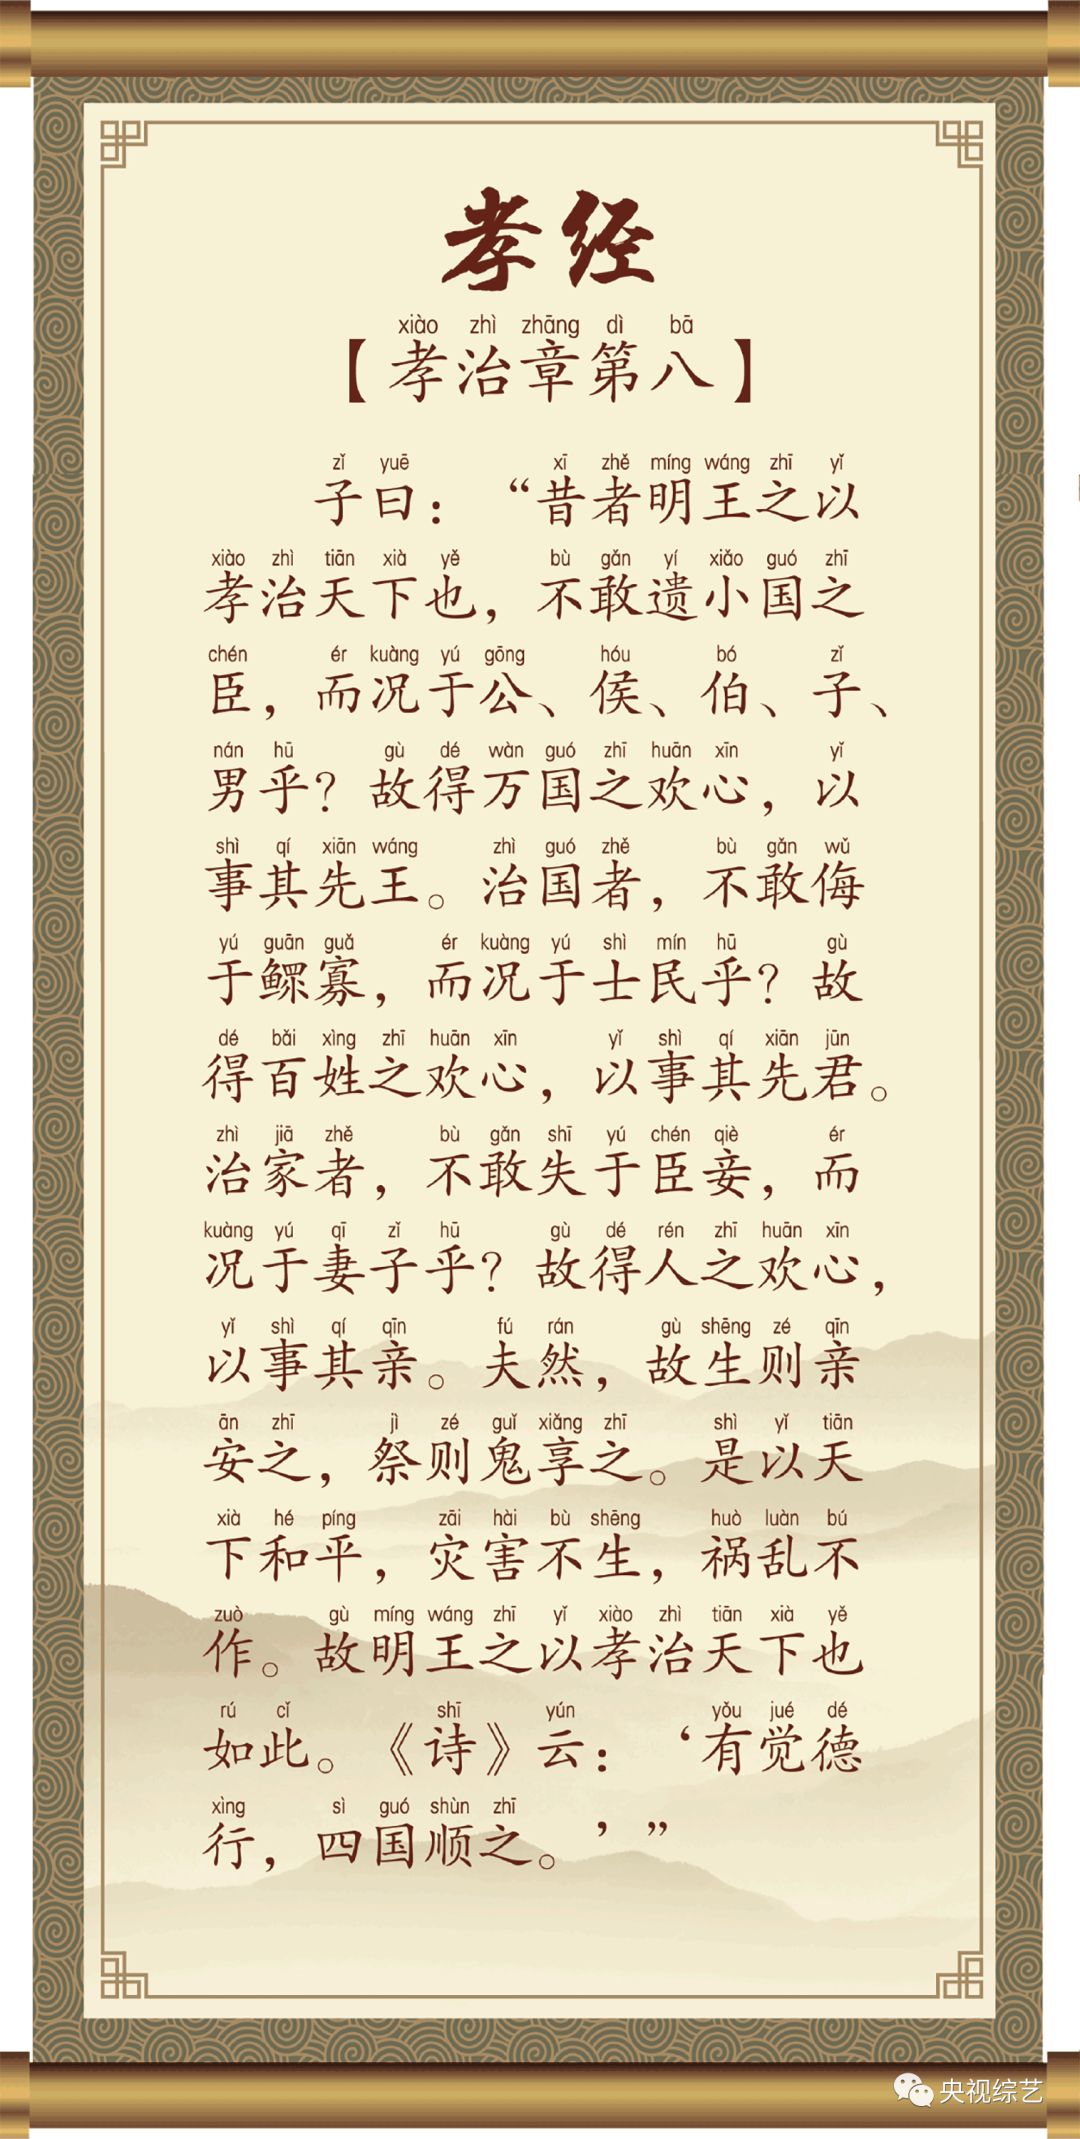 孝经
xiào zhì zhāng dì bā
【孝治章第八】
zǐ yuē xī zhě míng wáng zhī yǐ
子曰：“昔者明王之以
xiào zhì tiān xià yě bù gǎn yí xiǎo guó zhī
孝治天下也，不敢遗小国之
chén ér kuàng yú gōng hóu bó zǐ
臣，而况于公、侯、伯、子、
nán hū gù dé wàn guó zhī huān xīn yǐ
男乎？故得万国之欢心，以
shì qí xiān wáng zhì guó zhě bù gǎn wǔ
事其先王。治国者，不敢侮
yú guān guǎ ér kuàng yú shì mín hū gù
于鳏寡，而况于士民乎？故
dé bǎi xìng zhī huān xīn yǐ shì qí xiān jūn
得百姓之欢心，以事其先君。
zhì jiā zhě bù gǎn shī yú chén qiè ér
治家者，不敢失于臣妾，而
kuàng yú qī zǐ hū gù dé rén zhī huān xīn
况于妻子乎？故得人之欢心，
yǐ shì qí qīn fú rán gù shēng zé qīn
以事其亲。夫然，故生则亲
ān zhī jì zé guǐ xiǎng zhī shì yǐ tiān
安之，祭则鬼享之。是以天
xià hé píng zāi hài bù shēng huò luàn bú
下和平，灾害不生，祸乱不
zuò gù míng wáng zhī yǐ xiào zhì tiān xià yě
作。故明王之以孝治天下也
rú cǐ shī yún yǒu jué dé
如此。《诗》云：‘有觉德
xìng sì guó shùn zhī
行，四国顺之。’”
央视综艺